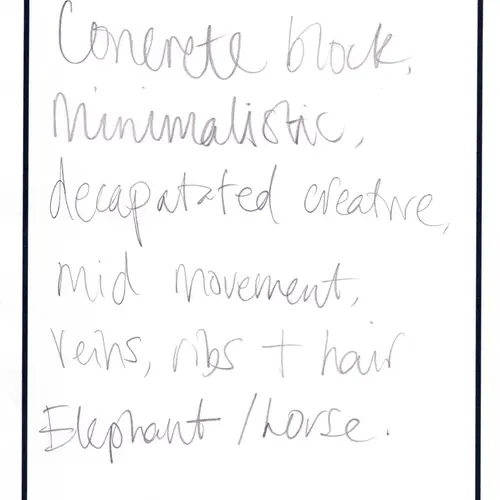 Concrete block,
Minimalistic,
decapatated creature,
mid movement,
veins, ribs + hair
Elephant / horse.